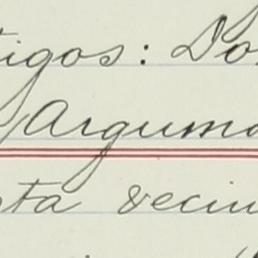 tigos: Do
Argumo
sta vecin